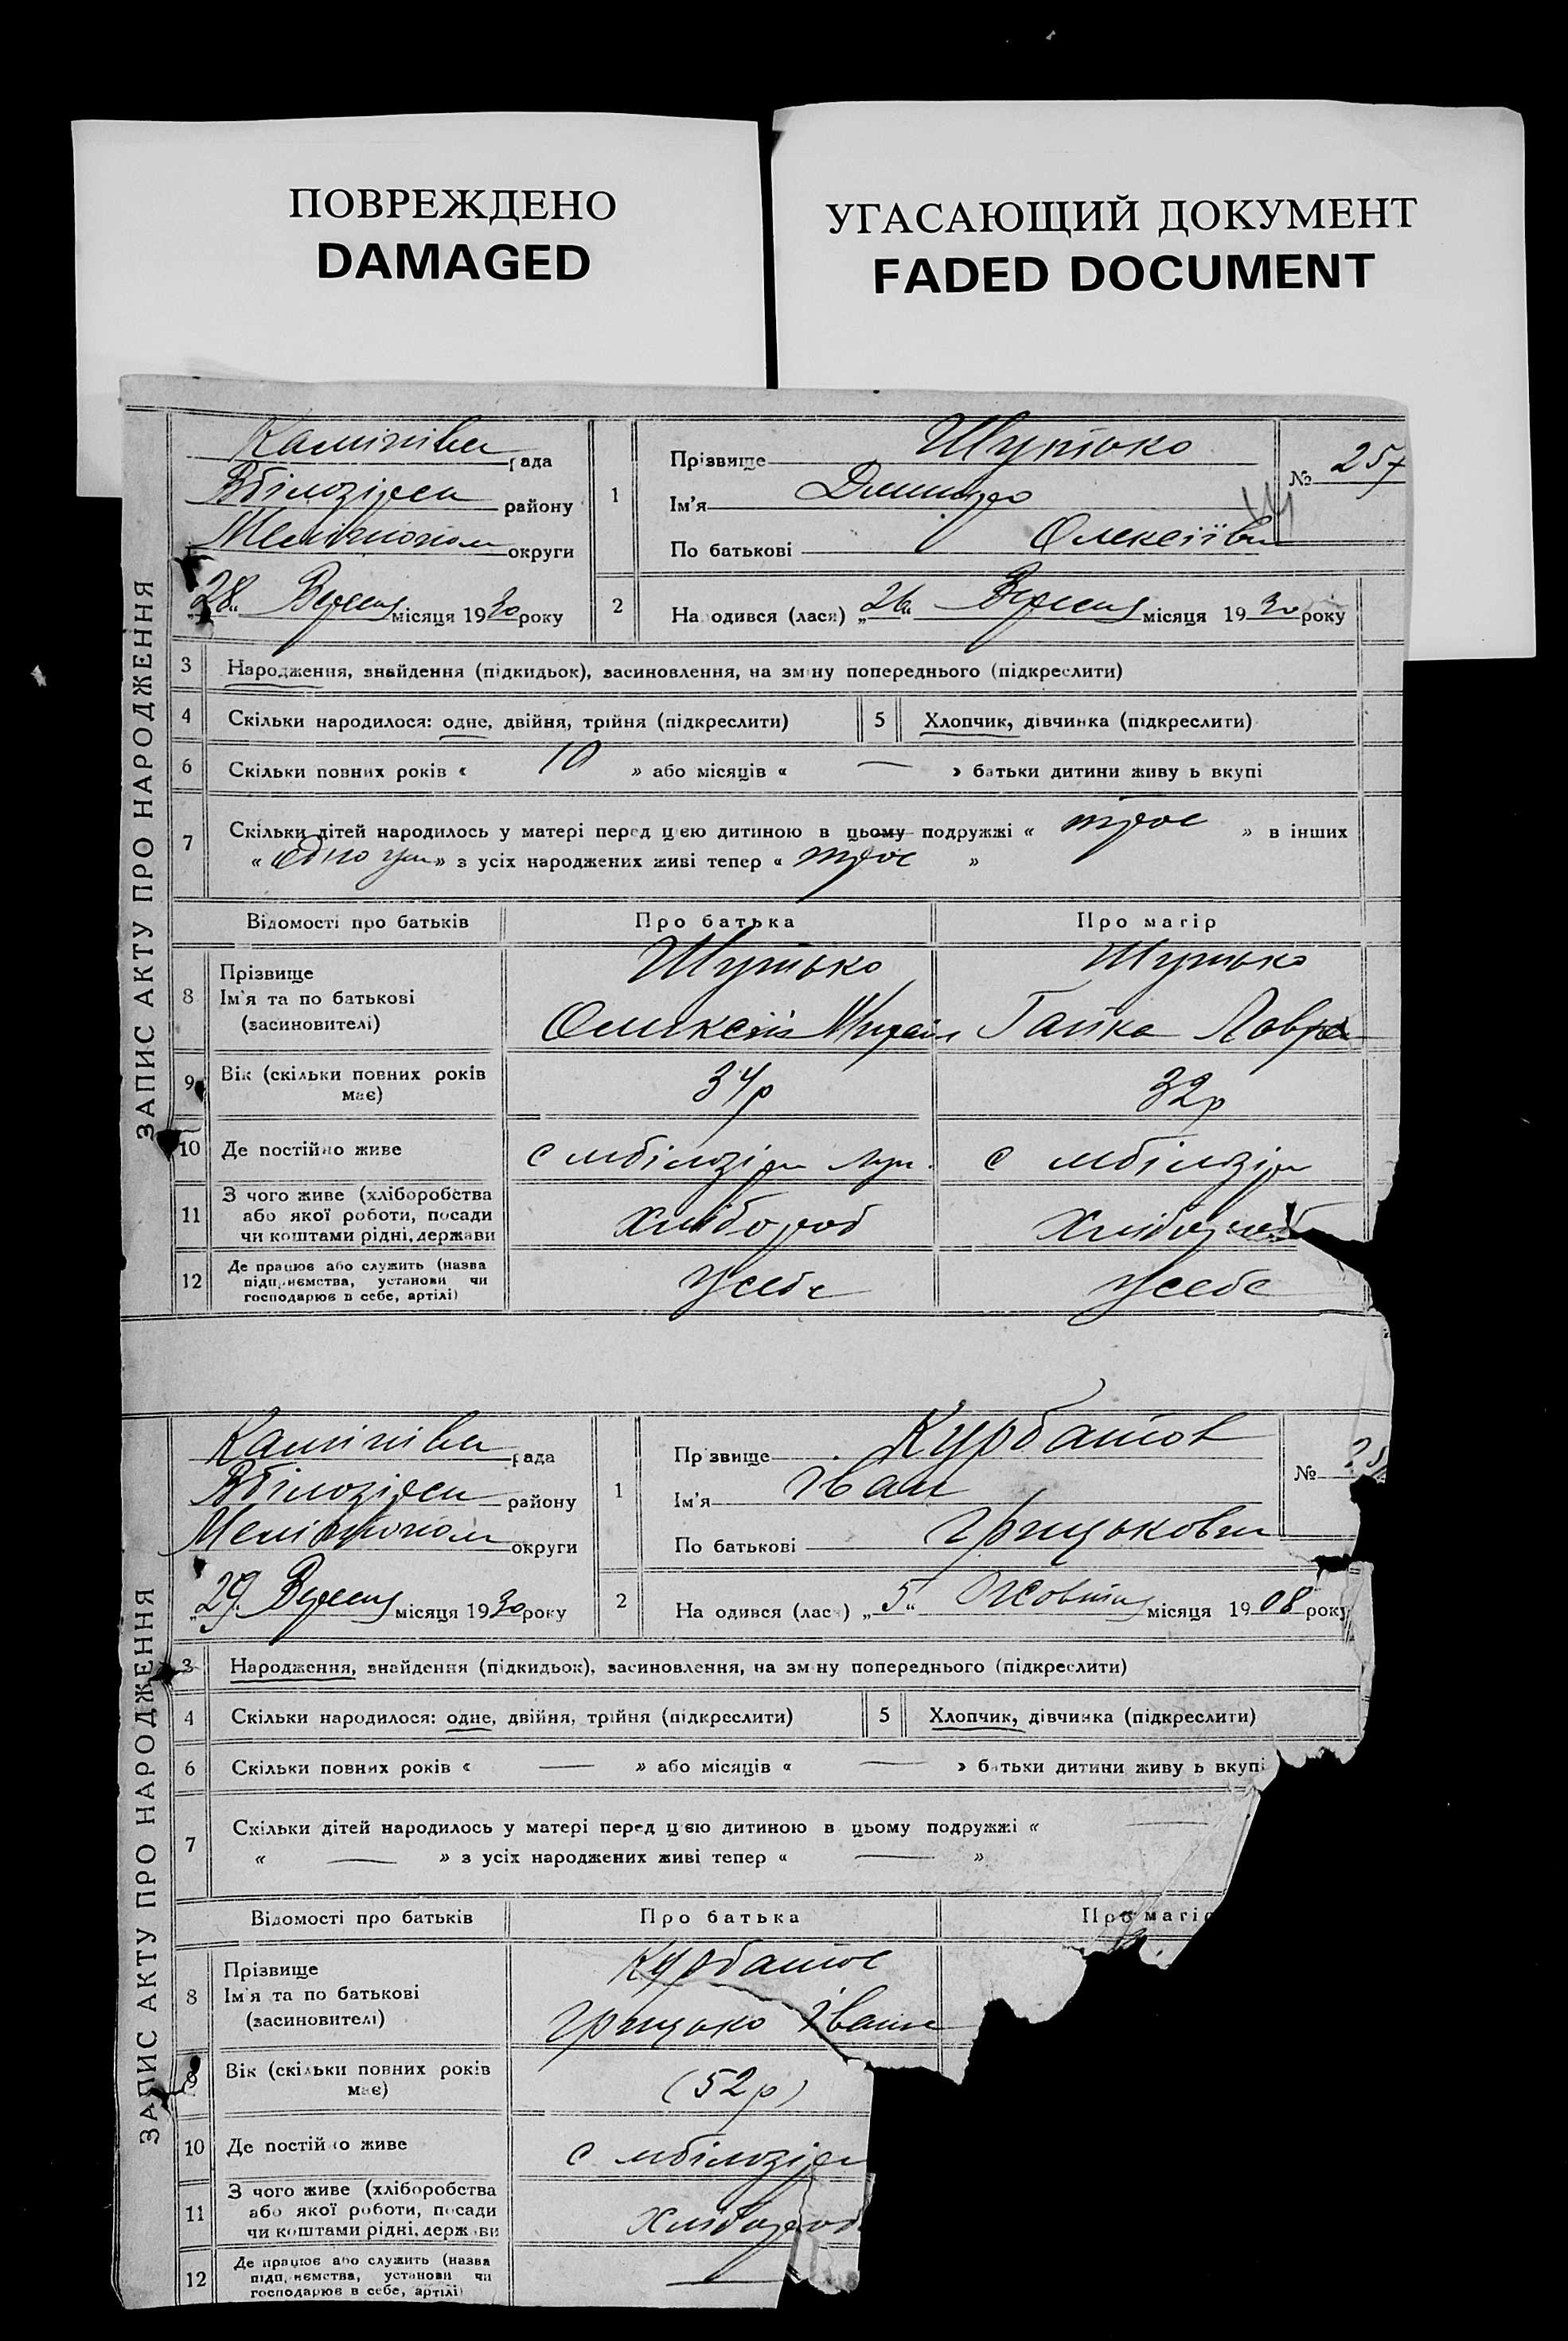 ПОВРЕЖДЕНО
DAMAGED
УГАСАЮЩИЙ ДОКУМЕНТ
FADED DOCUMENT
ЗАПИС АКТУ ПРО НАРОДЖЕННЯ
рада
району
округи
28 місяця 1930 року
1
Прізвище Шутько
Ім'я Дмитро
По батькові Олексіїв
№ 257
2
На одився (лася) „26“ місяця 1930 року
3 Народження, знайдення (підкидьок), засиновлення, на зм ну попереднього (підкреслити)
4 Скільки народилося: одне, двійня, трійня (підкреслити)
5 Хлопчик, дівчинка (підкреслити)
6 Скільки повних років « 10 » або місяців « — » батьки дитини живу ь вкупі
7 Скільки дітей народилось у матері перед цією дитиною в цьому подружжі « троє » в інших
« » з усіх народжених живі тепер « троє »
Відомості про батьків Про батька Про матір
8 Прізвище Шутько Шутько
Ім'я та по батькові
(засиновителі) Олексій Ганка Лавре
9 Вік (скільки повних років має) 34р 32р
10 Де постійно живе с мбілозірк с мбілозірк
11 З чого живе (хліборобства
або якої роботи, посади
чи коштами рідні, держави Хлібороб Хлібороб
12 Де працює або служить (назва
підп иємства, установи чи
господарює в себе, артілі) Усебе Усебе
ЗАПИС АКТУ ПРО НАРОДЖЕННЯ
рада
району
округи
„29“ місяця 1930 року
1
Пр звище Курбатов
Ім'я Іван
По батькові Грицькович
№ 25
2
На одився (лас ) „5“ Жовтня місяця 1908 року
3 Народження, знайдення (підкидьок), засиновлення, на зм ну попереднього (підкреслити)
4 Скільки народилося: одне, двійня, трійня (підкреслити)
5 Хлопчик, дівчинка (підкреслити)
6 Скільки повних років « — » або місяців « — » б тьки дитини живу ь вкупі
7 Скільки дітей народилось у матері перед цією дитиною в цьому подружжі « —
« — » з усіх народжених живі тепер « — »
Відомості про батьків Про батька Про матір
8 Прізвище Курбатов
Ім'я та по батькові
(засиновителі) Грицько Іван
9 Вік (скільки повних років має) (52р)
10 Де постій о живе с мбілозірк
11 З чого живе (хліборобства
або якої роботи, посади
чи коштами рідні, держ ви Хлібороб
12 Де працює або служить (назва
підп иємства, установи чи
господарює в себе, артілі) —